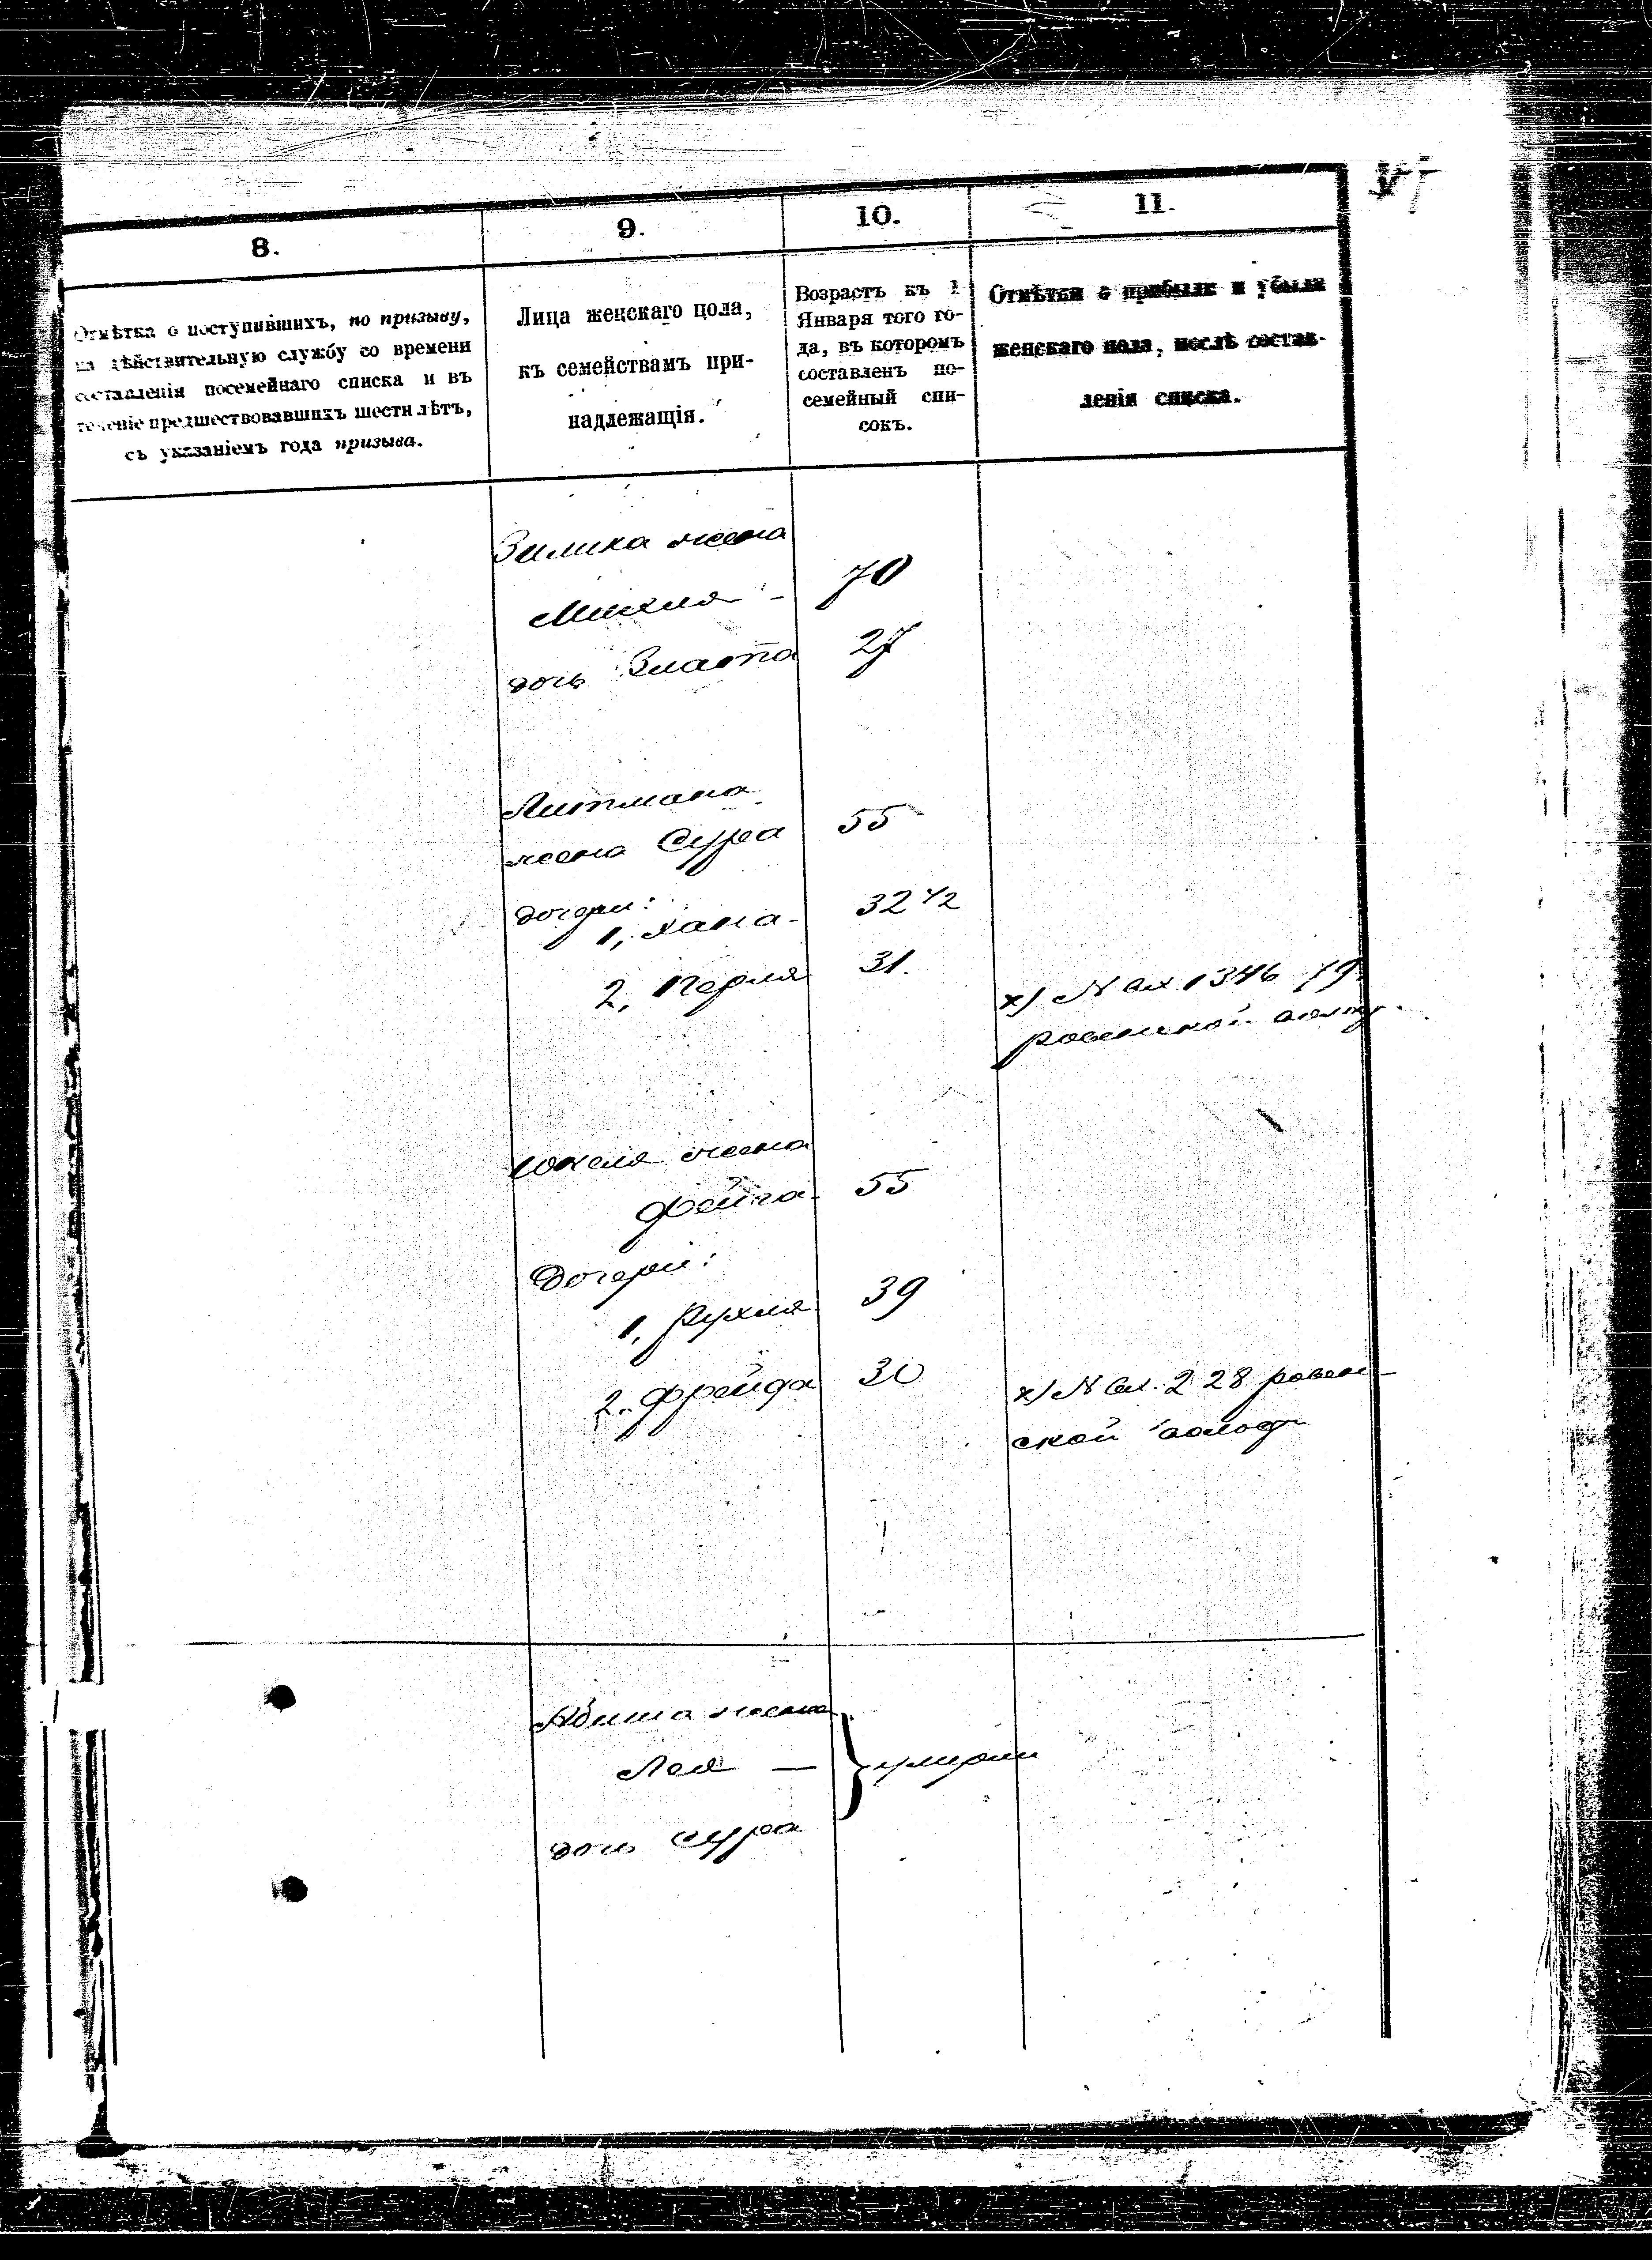 8.
9.
10.
11.
Отмѣтка о поступившихъ, по призыву,
на дѣйствительную службу со времени
составленія посемейнаго списка и въ
теченіе предшествовавшихъ шести лѣтъ,
съ указаніемъ года призыва.
Лица женскаго пола,
къ семействамъ при-
надлежащія.
Возрастъ къ 1
Января того го-
да, въ которомъ
составленъ по-
семейный спи-
сокъ.
Отмѣтки о прибыли и убыли
женскаго пола, послѣ состав-
ленія списка.
жена
70
дочь Злота 27
Литмана
жена Сура 55
дочери:
1, Хана - 32 1/2
2, Перля 31.
х) № вх. 1346
жена
Фейга - 55
Дочери:
1, Рухля 39
2. Фрейда 30
х) № вх. 228 ровен-
ской
жена
Лея —
умерли
дочь Сура